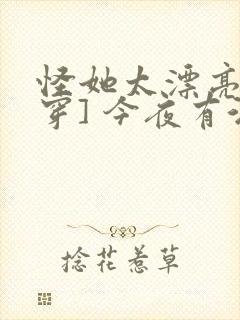 怪她太漂亮
穿] 今夜有
捻花惹草